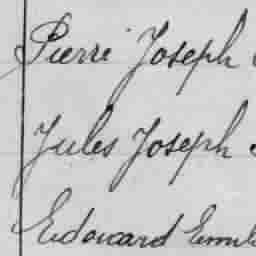 Pierre Joseph
Jules Joseph
Edouard